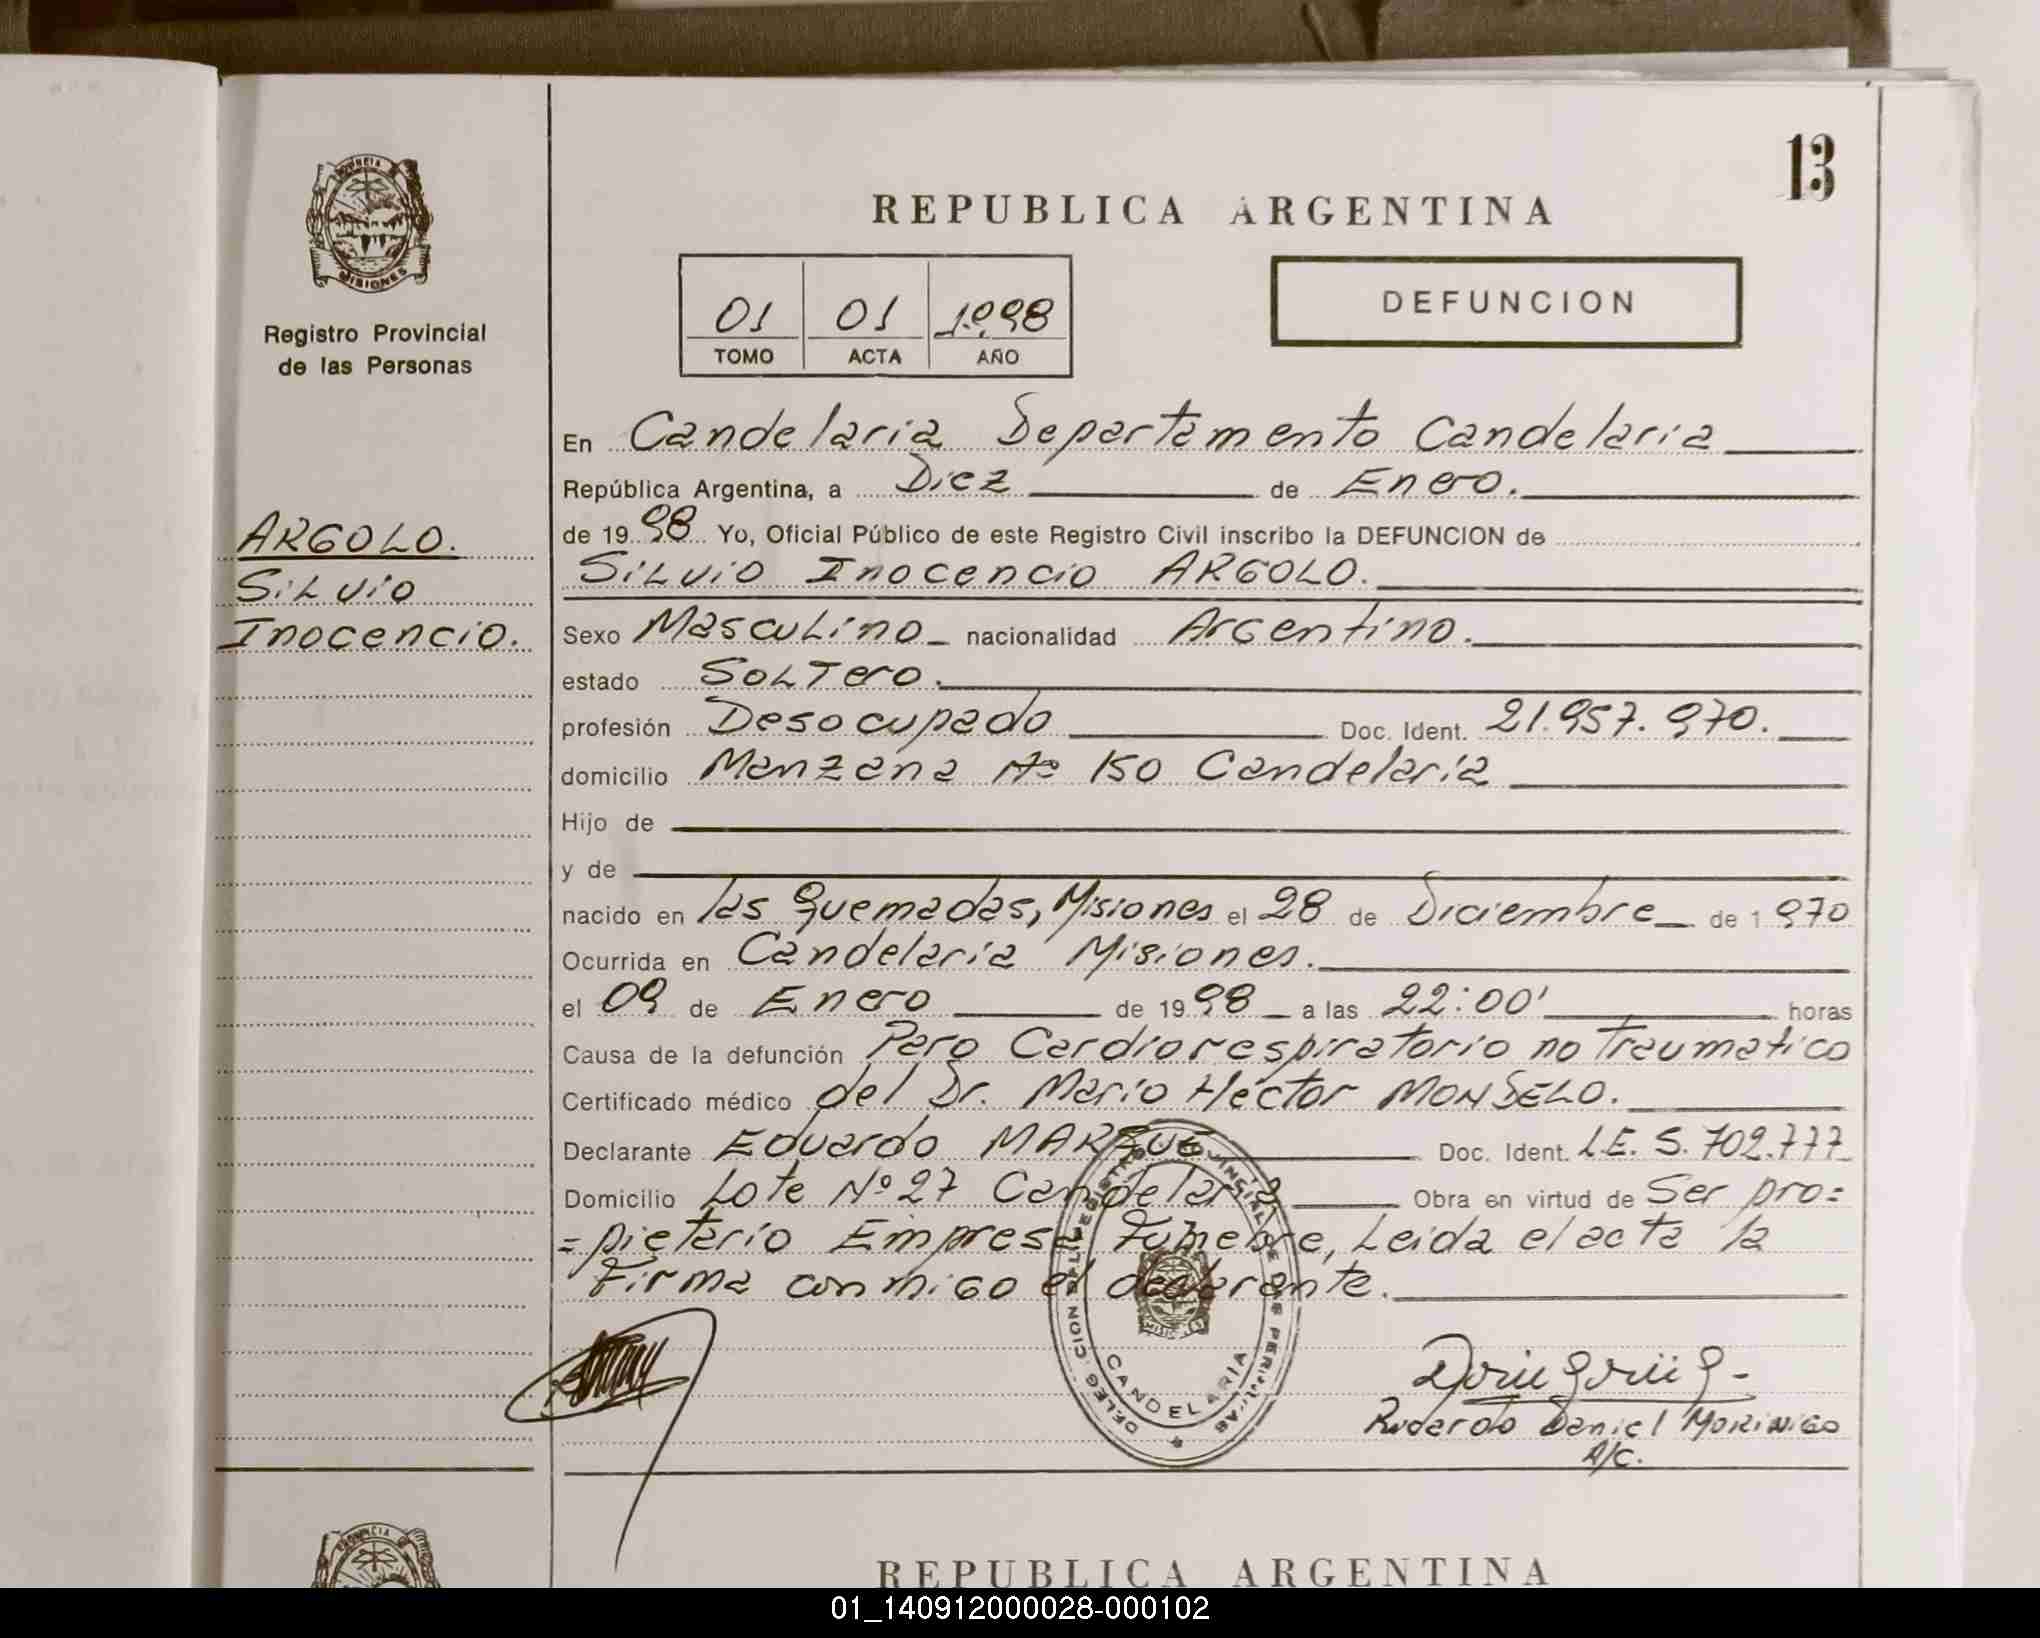 13
REPUBLICA ARGENTINA
PROVINCIA
MISIONES
Registro Provincial
de las Personas
01 01 1998
TOMO ACTA AÑO
DEFUNCION
ARGOLO.
Silvio
Inocencio.
En Candelaria Departamento Candelaria
República Argentina, a Diez de Enero.
de 19 98 Yo, Oficial Público de este Registro Civil inscribo la DEFUNCION de
Silvio Inocencio ARGOLO.
Sexo Masculino nacionalidad Argentino.
estado Soltero.
profesión Desocupado Doc. Ident. 21.957.970.
domicilio Manzana Nº 150 Candelaria
Hijo de
y de
nacido en las Quemadas, Misiones el 28 de Diciembre de 1970
Ocurrida en Candelaria Misiones.
el 09 de Enero de 19 98 a las 22:00' horas
Causa de la defunción Paro Cardiorespiratorio no Traumatico
Certificado médico del Dr. Mario Héctor MONDELO.
Declarante Eduardo MARQUE Doc. Ident. L.E. 5.702.777
Domicilio Lote Nº 27 Candelaria Obra en virtud de Ser pro=
=pietario Empresa Fúnebre, Leida el acta la
Firma conmigo el declarante.
DELEGACION DEL REGISTRO PROVINCIAL DE LAS PERSONAS
CANDELARIA
Ricardo Daniel MORINIGO
A/C.
REPUBLICA ARGENTINA
01_140912000028-000102